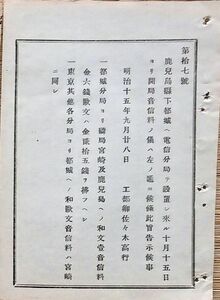 第拾七號
鹿兒島縣下都城ヘ電信分局ヲ設置シ來ル十月十五日
ヨリ開局音信料ノ儀ハ左ノ通候條此旨告示候事
明治十五年九月廿八日　工部卿佐々木高行
一都城分局ヨリ福島宮崎及鹿兒島ヘノ和文壹音信料
金六錢歐文ハ金貳拾五錢ヲ拂フヘシ
一東京其他各分局ヨリ都城ヘノ和歐文音信料ハ宮崎
ニ同シ